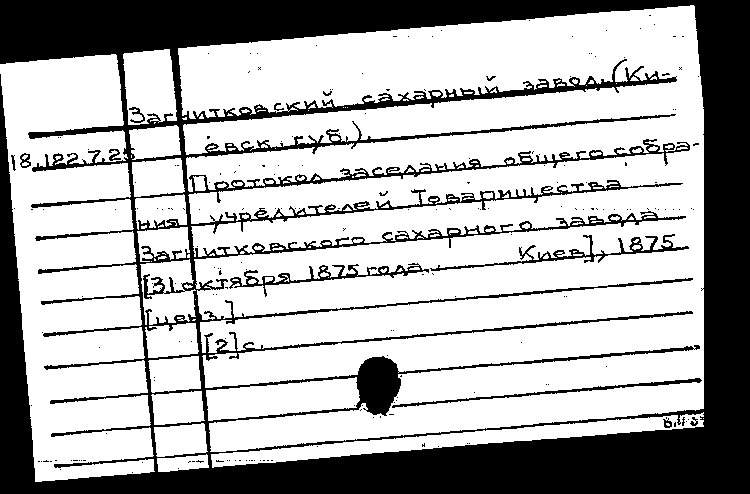 Загнитковский сахарный завод (Ки-
евск. губ.).
18.122.7.25
Протокол заседания общего собра-
ния учредителей Товарищества
Загнитковского сахарного завода
[31 октября 1875 года. Киев], 1875
[ценз.].
[2] с.